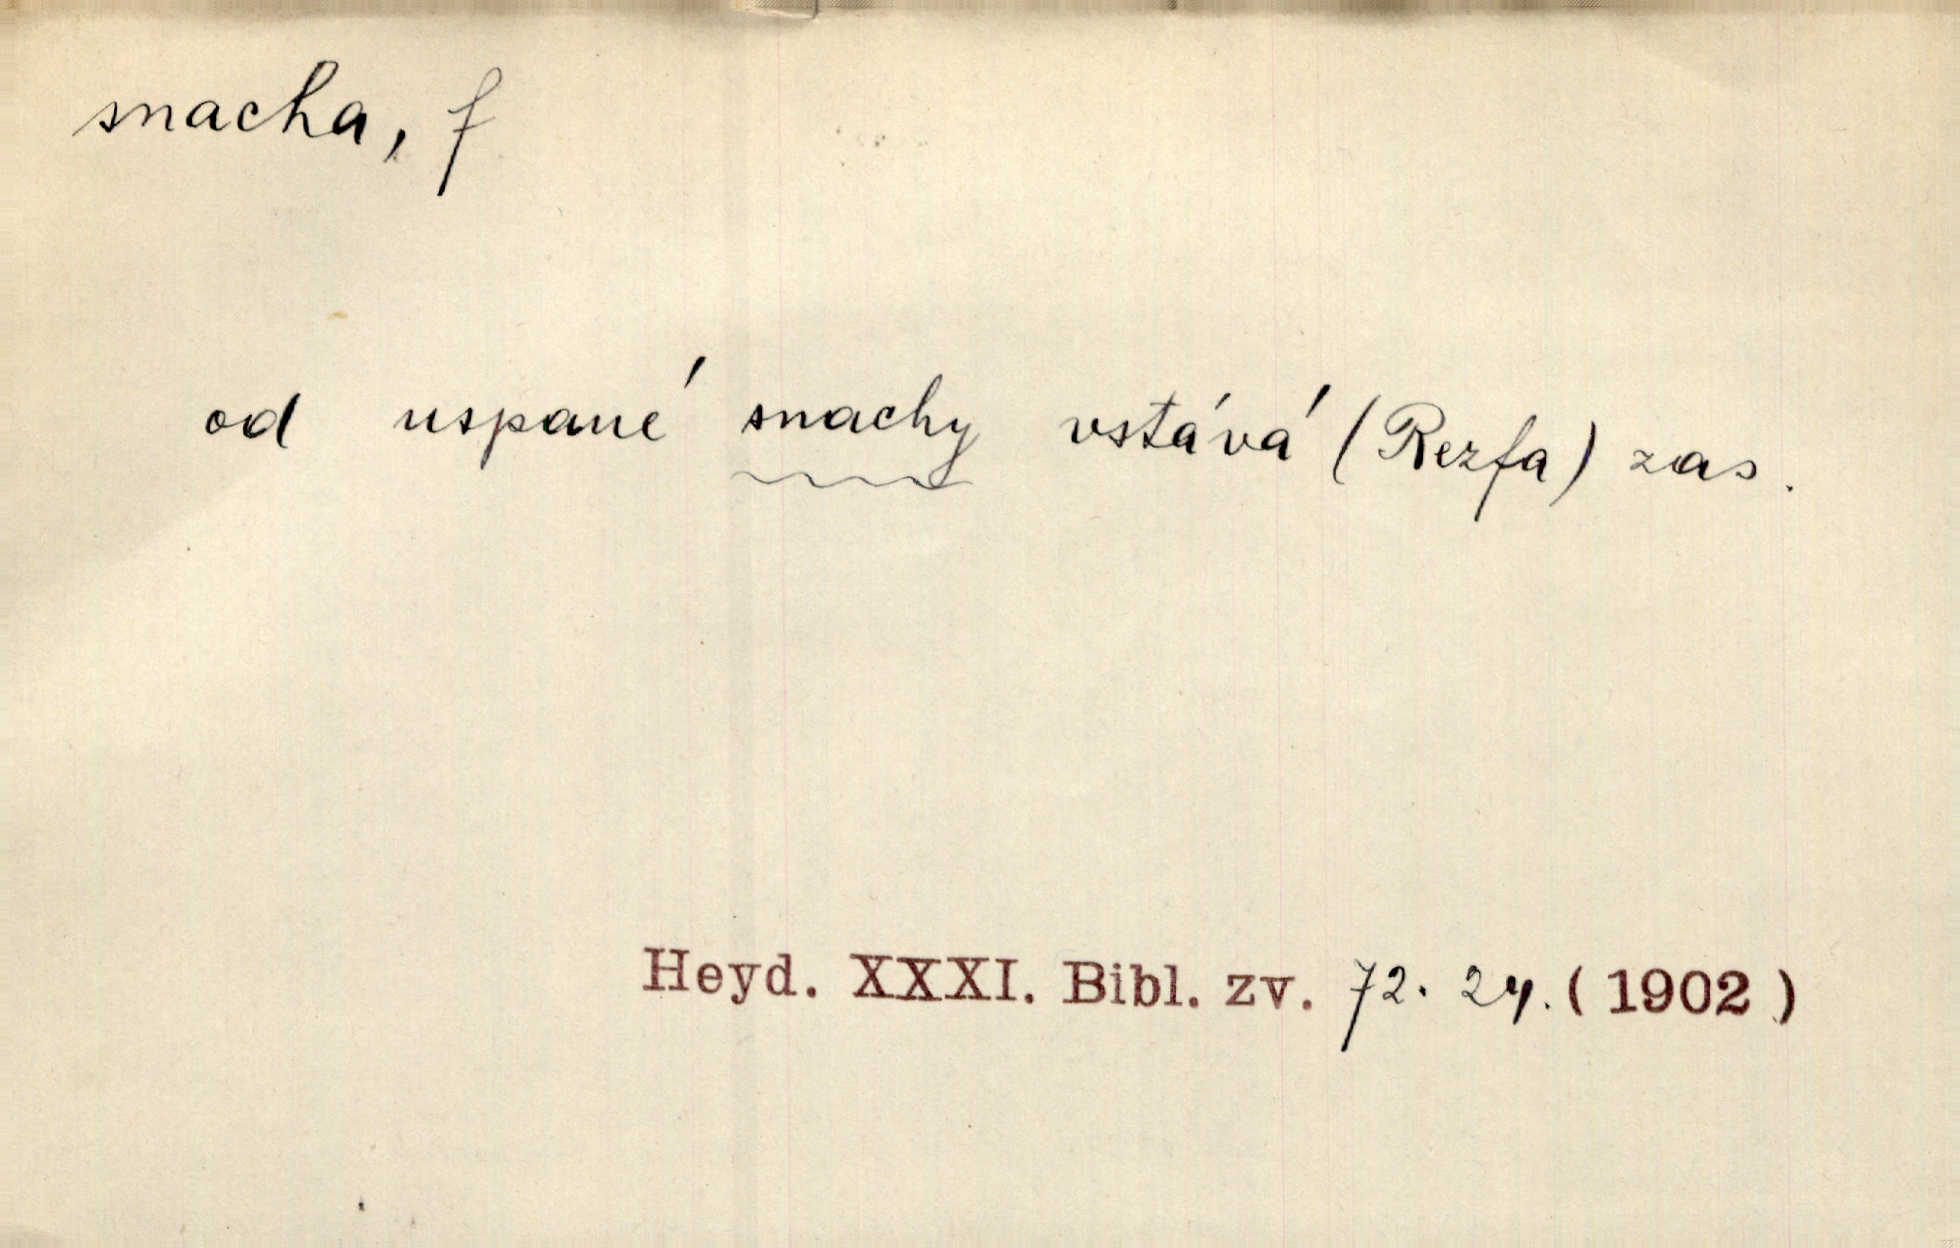 snacha, f
od uspané snachy vstává (Rezfa) zas.
Heyd. XXXI. Bibl. zv. 72. 24. (1902)